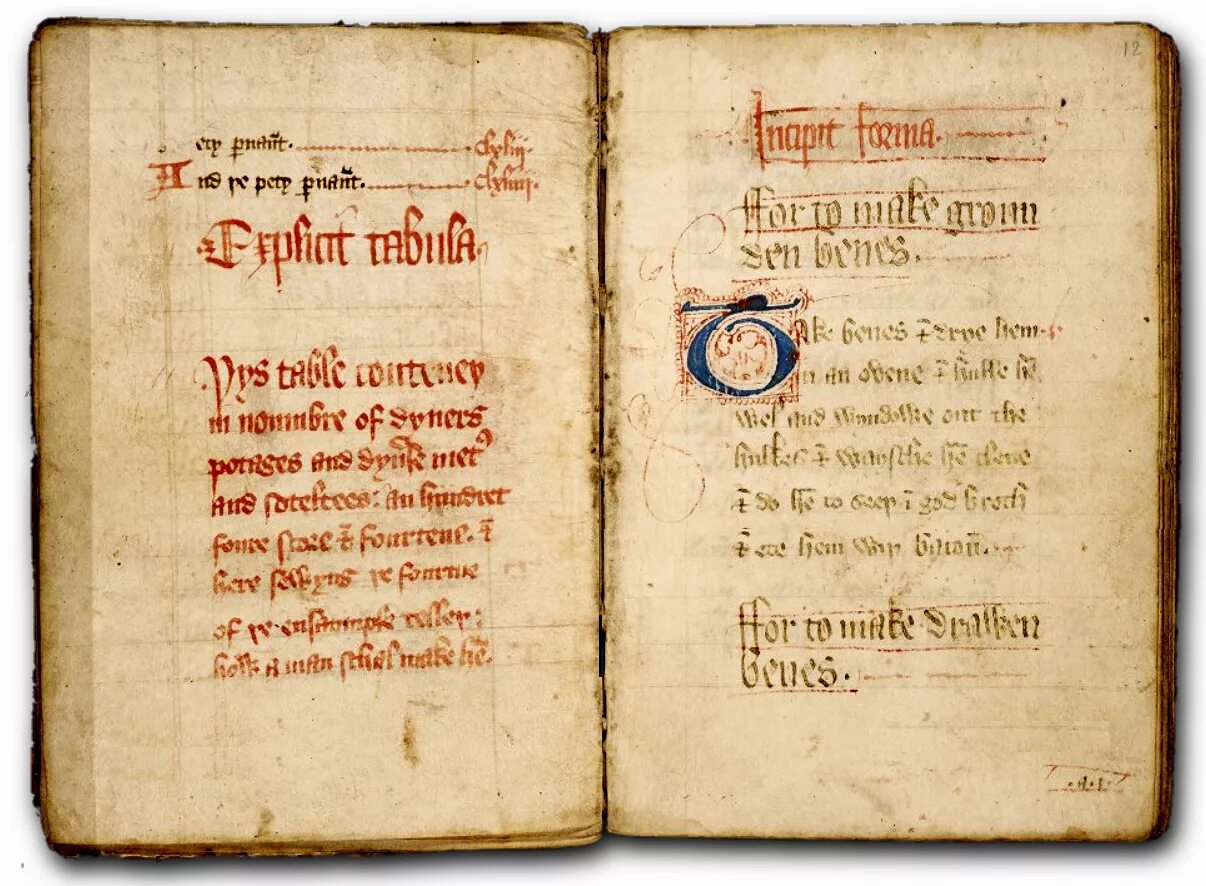 ety puaūt. clxliij.
And þe pety puaūt. clxliiij.
Explicit tabula.
Þys table conteneþ
in nombre of dyuers
potages and dyuse metꝰ
and soteltees: an hundret
foure score & fourtene. &
here sewyng þe fourme
of þe ensaumple telleþ:
how a man schal make hē.
12
Incipit forma.
ffor to make groun
den benes.
Take benes & drye hem
in an ovene & hulke hē
wel and wyndowe out the
hulkes & waysche hē clene
& do hē to seeþ ī god broth
& ete hem wiþ bacoū.
ffor to make drawen
benes.
.a.i.